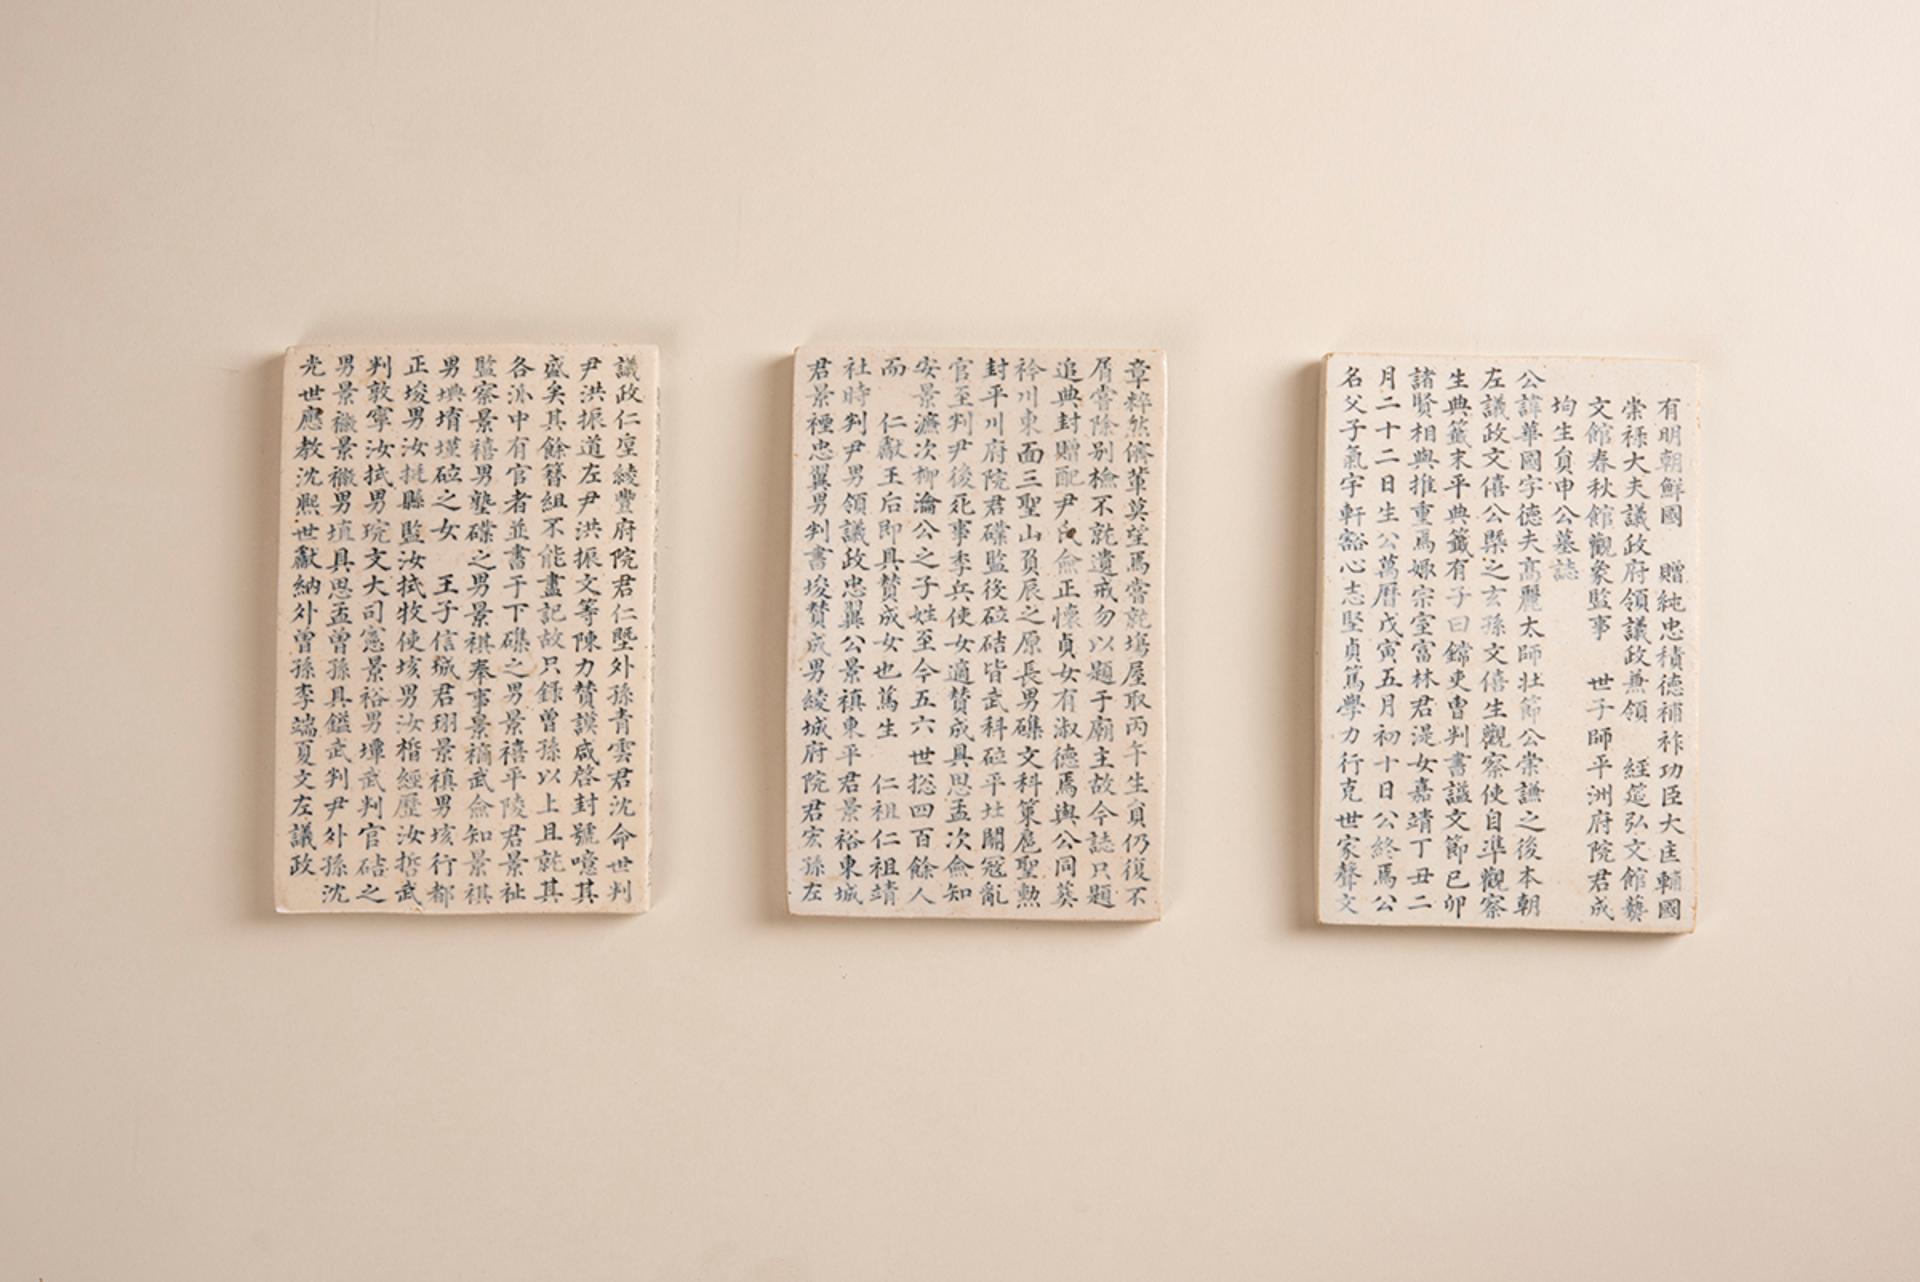 有明朝鮮國 贈純忠積德補祚功臣大匡輔國
崇祿大夫議政府領議政兼領 經筵弘文館藝
文館春秋館觀象監事 世子師平洲府院君成
均生貟申公墓誌
公諱華國字德夫高麗太師壯節公崇謙之後本朝
左議政文僖公槩之玄孫文僖生觀察使自準觀察
生典籤末平典籤有子曰鏛吏曹判書謚文節已卯
諸賢相與推重焉娵宗室富林君湜女嘉靖丁丑二
月二十二日生公萬曆戊寅五月初十日公終焉公
名父子氣宇軒豁心志堅貞篤學力行克世家聲文
章粹然儕輩莫望焉嘗就塲屋取丙午生貟仍復不
屑嘗除别檢不就遺戒勿以題于廟主故今誌只題
追典封贈配尹氏僉正懷貞女有淑德焉與公同葬
衿川東面三聖山負辰之原長男磼文科策扈聖勲
封平川府院君磼監後砬硈皆武科砬平壮關冦亂
官至判尹後死事季兵使女適贊成具思孟次僉知
安景濂次柳瀹公之子姓至今五六世揔四百餘人
而 仁獻王后即具贊成女也篤生 仁祖仁祖靖
社時判尹男領議政忠翼公景禛東平君景裕東城
君景禋忠翼男判書埈贊成男綾城府院君宏孫左
議政仁垕綾豐府院君仁墍外孫青雲君沈命世判
尹洪振道左尹洪振文等陳力贊謨咸啓封號噫其
盛矣其餘簪組不能盡記故只錄曾孫以上且就其
各派中有官者並書于下磼之男景禧平陵君景祉
監察景禧男墪磼之男景祺奉事景禤武僉知景祺
男㙉堉墐砬之女 王子信城君珝景禛男垓行都
正埈男汝挻縣監汝拭牧使垓男汝楷經歷汝哲武
判敦寧汝拭男琓文大司憲景裕男墰武判官硈之
男景 景 男塡具思孟曾孫具鎰武判尹外孫沈
光世應教沈熙世獻納外曾孫李端夏文左議政